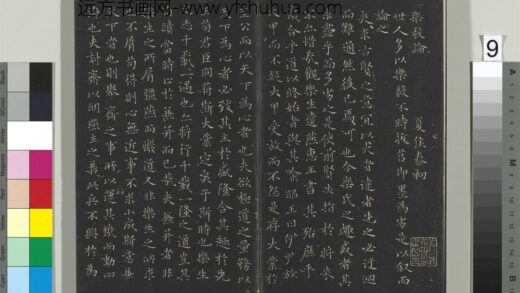 远方书画网-www.yfshuhua.com
9
樂毅論
夏侯泰初
世人多以樂毅不時拔莒即墨為劣是以敘而
論之
夫求古賢之意宜以大者遠者先之必迂迴
而難通然後已焉可也今樂氏之趣或者其
未盡乎而多劣之是使前賢失指於將來
不亦惜哉觀樂生遺燕惠王書其殆庶乎
機合乎道以終始者與其喻昭王曰伊尹放
大甲而不疑大甲受放而不怨是存大業於
至公而以天下為心者也夫欲極道之量務以
天下為心者必致其主於盛隆合其趣於先
王苟君臣同符斯大業定矣于斯時也樂生
之志千載一遇也亦將行千載一隆之道豈其
局蹟當時止於兼并而已哉夫兼并者非
樂生之所屑彊燕而廢道又非樂生之所求
也不屑苟得則心無近事不求小成斯意兼
天下者也則舉齊之事所以運其機而動四
海也夫討齊以明燕王之義此兵不興於為